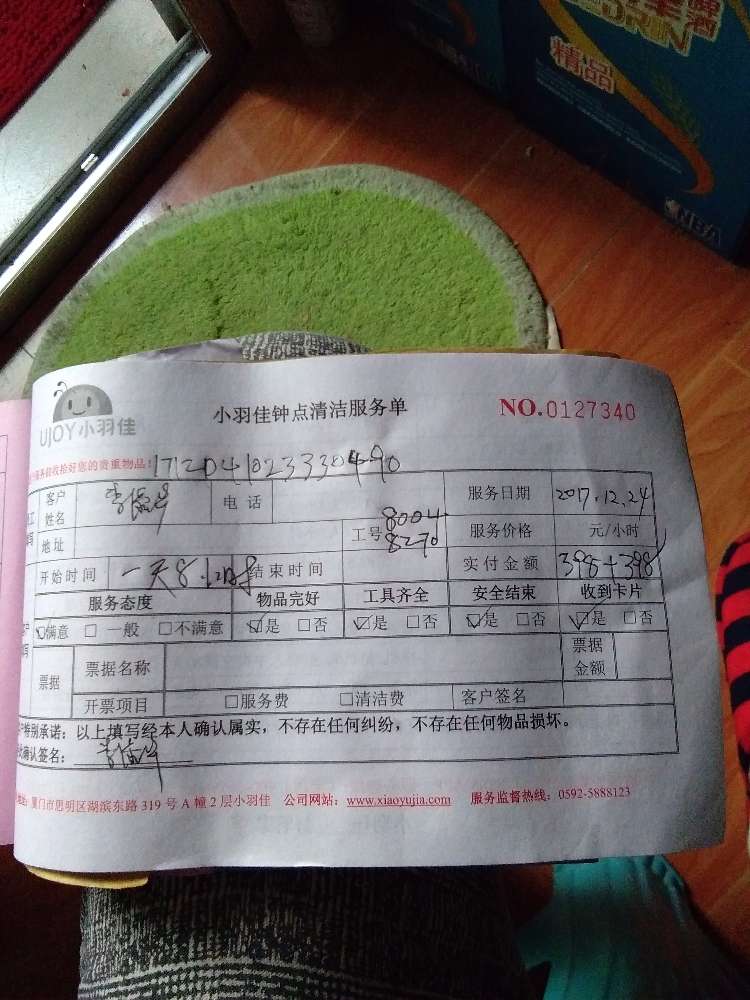 精品
NBA
UJOY小羽佳
小羽佳钟点清洁服务单
NO.0127340
服务前请收拾好您的贵重物品!
1712041023330490
客户姓名 电话 服务日期 2017.12.24
地址 工号 8004 8270 服务价格 元/小时
开始时间 一天8小时 结束时间 实付金额 398+398
服务态度 物品完好 工具齐全 安全结束 收到卡片
☑满意 □一般 □不满意 ☑是 □否 ☑是 □否 ☑是 □否 ☑是 □否
票据 票据名称 票据金额
开票项目 □服务费 □清洁费 客户签名
特别承诺：以上填写经本人确认属实，不存在任何纠纷，不存在任何物品损坏。
确认签名：
地址：厦门市思明区湖滨东路 319 号 A 幢 2 层小羽佳 公司网站：www.xiaoyujia.com 服务监督热线：0592-5888123